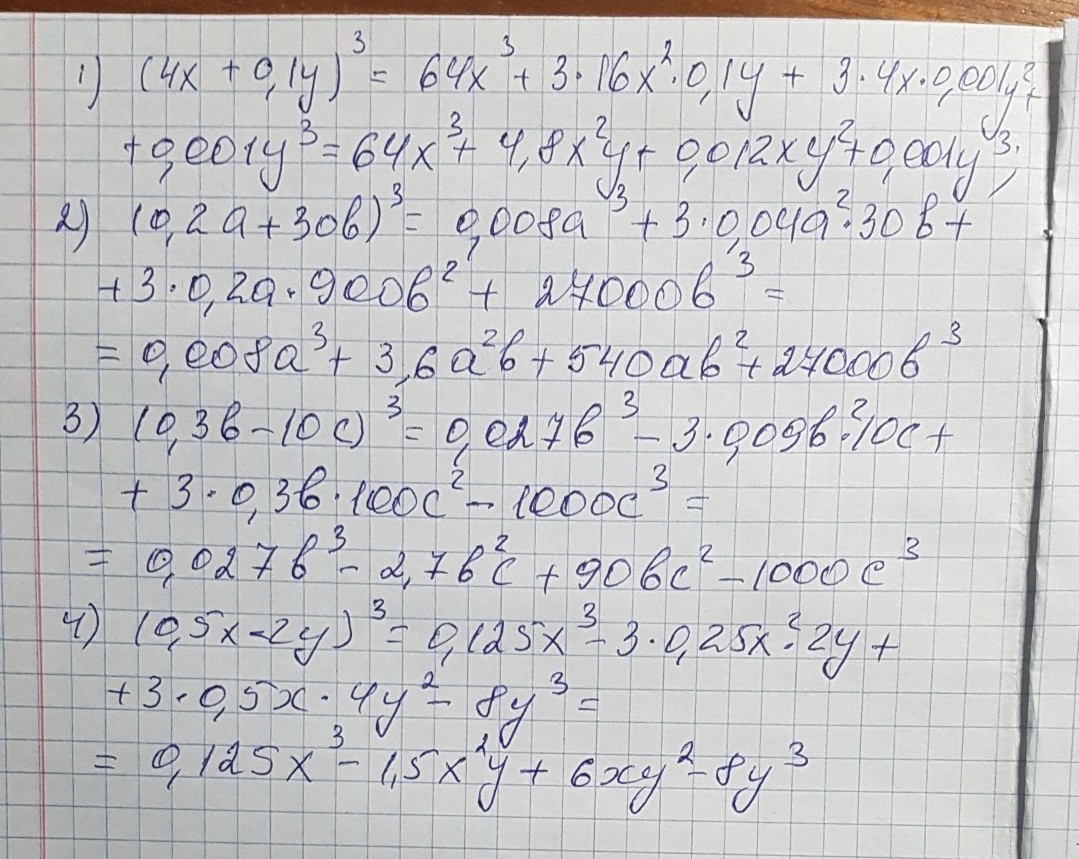 1) (4x + 0,1y)³ = 64x³ + 3·16x²·0,1y + 3·4x·0,001y²+
+0,001y³ = 64x³ + 4,8x²y + 0,012xy² + 0,001y³;
2) (0,2a + 30b)³ = 0,008a³ + 3·0,04a²·30b +
+ 3·0,2a·900b² + 27000b³ =
= 0,008a³ + 3,6a²b + 540ab² + 27000b³
3) (0,3b – 10c)³ = 0,027b³ – 3·0,09b²·10c +
+ 3·0,3b·100c² – 1000c³ =
= 0,027b³ – 2,7b²c + 90bc² – 1000c³
4) (0,5x – 2y)³ = 0,125x³ – 3·0,25x²·2y +
+ 3·0,5x·4y² – 8y³ =
= 0,125x³ – 1,5x²y + 6xy² – 8y³